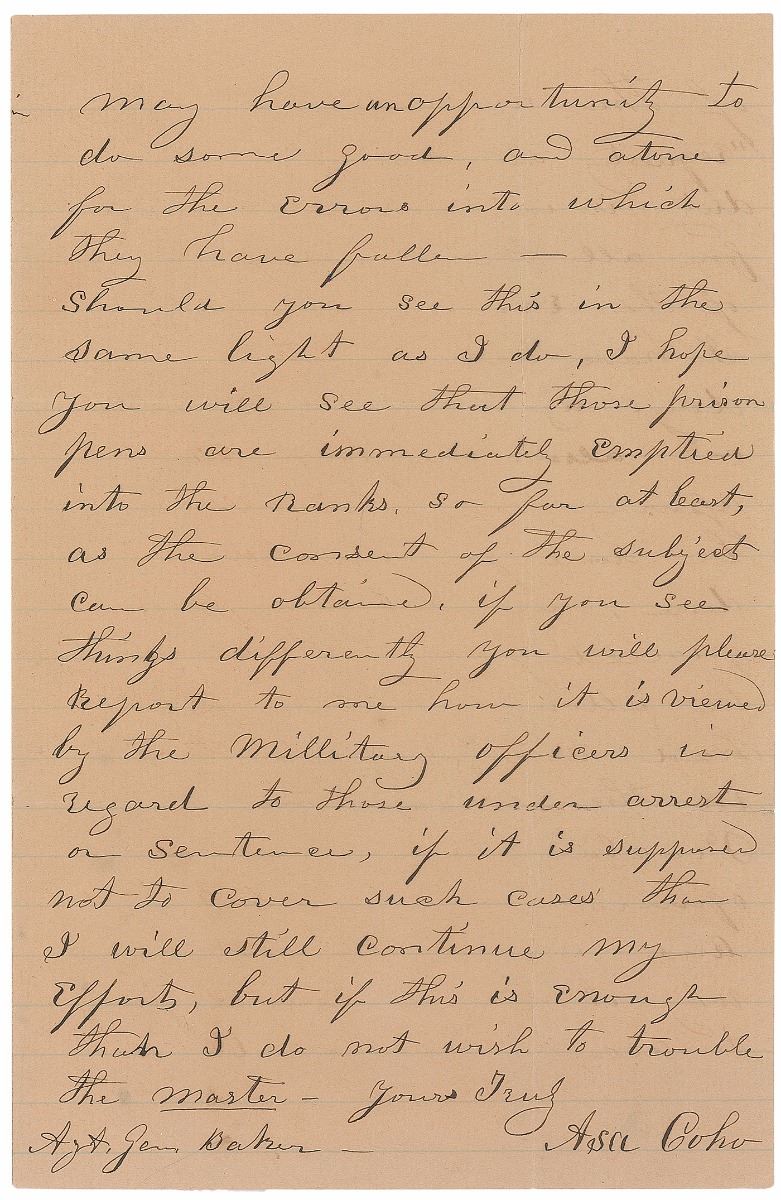 may have an opportunity to
do some good, and atone
for the Errors into which
they have fallen —
Should you see this in the
same light as I do, I hope
you will see that those prison
pens are immediately Emptied
into the Ranks, so far at least,
as the consent of the subject
can be obtained. if you see
things differently you will please
Report to me how it is viewed
by the Millitary officers in
regard to those under arrest
or Sentence, if it is supposed
not to cover such cases than
I will still continue my
Efforts, but if this is Enough
than I do not wish to trouble
the master — Yours Truly
Asa Coho
Agt. Gen. Baker —